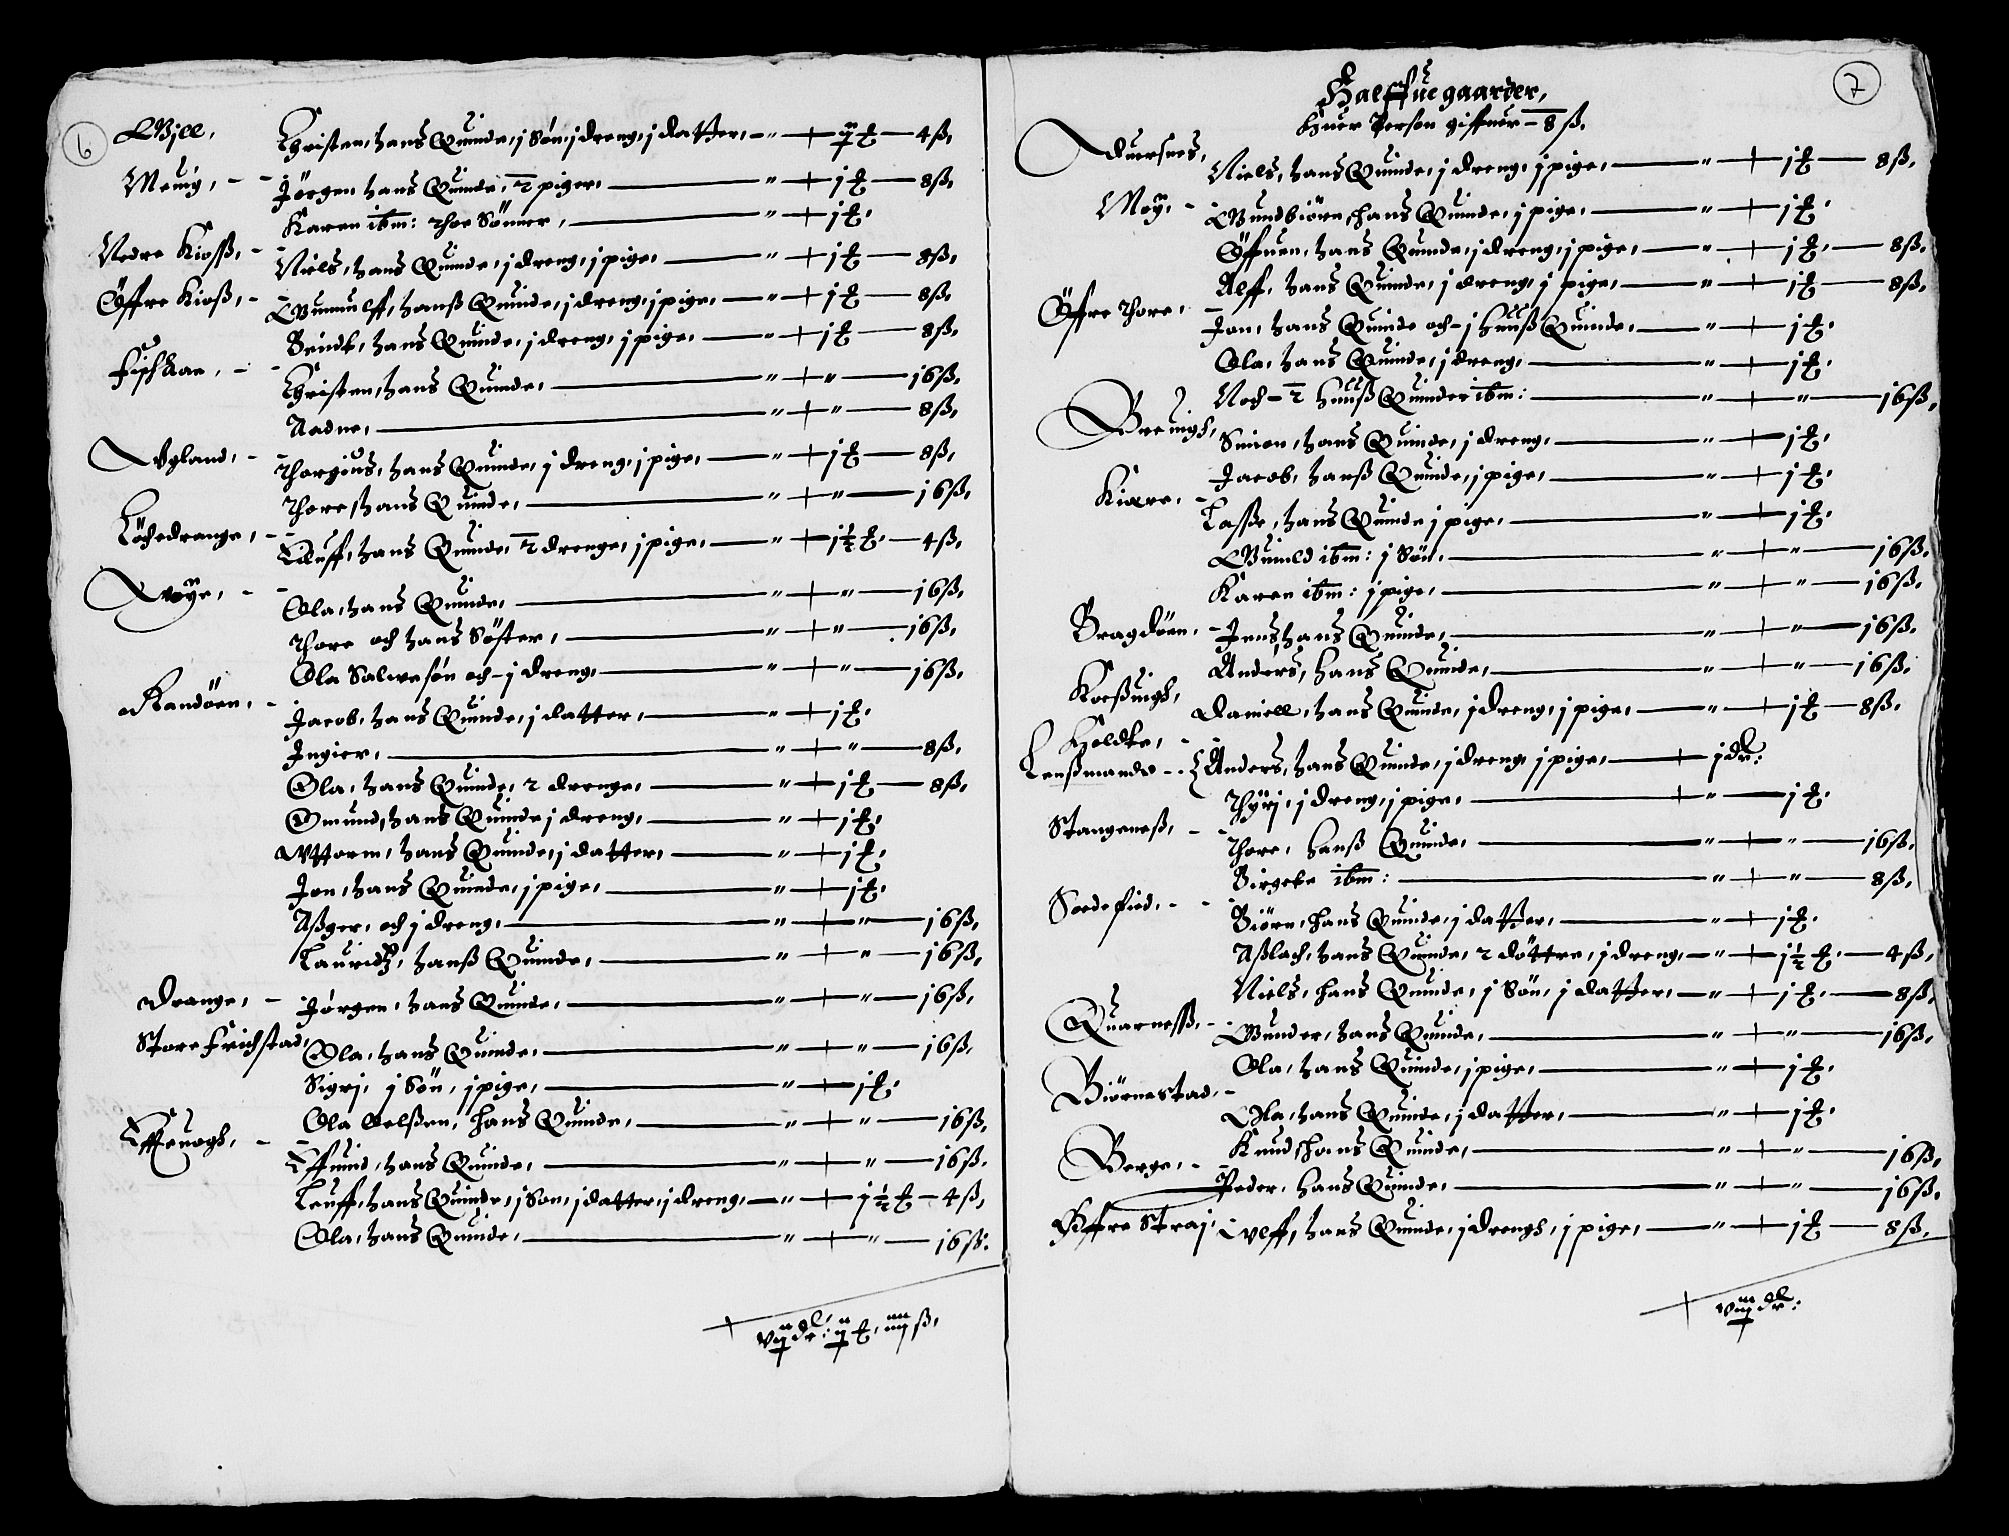 6
Christen, hans Quinde, j Søn, j dreng, j datter, — " — ij ℔ — 4 ß,
Meuig, - - Jörgen hans Quinde, 2 piger, — " — j ℔ — 8 ß,
Karen ibm: thoe Sönner, — " — j ℔.
Nedre Kioss, - Niels, hans Quinde, j dreng, j pige, — " — j ℔ — 8 ß,
Öffre Kioß, - Gunnulff, hanß Quinde, j dreng, j pige, — " — j ℔ — 8 ß,
Bendt, hans Quinde, j dreng, j pige, — " — j ℔ — 8 ß,
Christen, hans Quinde, — " — " — 16 ß,
Aadne, — " — " — 8 ß,
Vgland, - Thorgius, hans Quinde, j dreng, j pige, — " — j ℔ — 8 ß,
Thores hans Quinde, — " — " — 16 ß,
hans Quinde, 2 drenge, j pige, — " — j ½ ℔. — 4 ß,
Woye, - - Ola, hans Quinde, — " — " — 16 ß,
Thore och hans Söster, — " — " — 16 ß,
Ola Salwesön och - j dreng, — " — " — 16 ß,
Randöen, - Jacob, hans Quinde, j datter, — " — j ℔.
Ingier, — " — " — 8 ß,
Ola, hans Quinde, 2 drenge, — " — j ℔ — 8 ß,
Omund, hans Quinde j dreng, — " — j ℔.
Vttorm, hans Quinde, j datter, — " — j ℔.
Jon, hans Quinde, j pige, — " — j ℔.
Aßger, och j dreng, — " — " — 16 ß,
Lauridz, hanß Quinde, — " — " — 16 ß,
Drange, - Jörgen, hans Quinde, — " — " — 16 ß,
Store Frichstad, Ola, hans Quinde, — " — " — 16 ß,
Sigrj, j Sön, j pige, — " — j ℔.
Ola Oelßen, hans Quinde, — " — " — 16 ß,
Effuind, hans Quinde, — " — " — 16 ß.
Leuff, hans Quinde, j Søn, j datter, j dreng, — " — j ½ ℔ — 4 ß,
Ola, hans Quinde, — " — " — 16 ß.
vij dlr: ij ℔, iiij ß,
7
Halffue gaarder,
Huer Person giffuer - 8 ß.
Niels, hans Quinde, j dreng, j pige, — " — j ℔ — 8 ß,
Moy, - Gundbiörn, hans Quinde, j pige, — " — j ℔.
Öffuen, hans Quinde, j dreng, j pige, — " — j ℔. — 8 ß,
Alff, hans Quinde, j dreng, j pige, — " — j ℔ — 8 ß,
Öffre Thore, - Jon, hans Quinde och - j Huuß Quinde, — " — j ℔.
Ola, hans Quinde, j dreng, — " — j ℔.
Noch - 2 Huuß Quinder ibm: — " — " — 16 ß,
Simon, hans Quinde, j dreng, — " — j ℔.
Jacob, hanß Quinde, j pige, — " — j ℔.
Kiære, - Lasse, hans Quinde j pige, — " — j ℔.
Gunild ibm: j Sön, — " — " — 16 ß.
Karen ibm: j pige, — " — " — 16 ß,
Bragdöen, - Jens, hans Quinde, — " — " — 16 ß,
Anders, hans Quinde, — " — " — 16 ß,
Daniell, hans Quinde, j dreng, j pige, — " — j ℔ — 8 ß,
Holdte, -
Lenßmands - Anders, hans Quinde, j dreng, j pige, — j dlr:
Thyrj, j dreng, j pige, — " — j ℔.
Stangeneß, - - Thore, hanß Quinde, — " — " — 16 ß.
Birgete ibm: — " — " — 8 ß,
Biörn, hans Quinde, j datter, — " — j ℔.
Aßlach, hans Quinde, 2 döttre, j dreng, — " — j ½ ℔. — 4 ß,
Niels, hans Quinde, j Sön, j datter, — " — j ℔. — 8 ß,
Quarness, - Gunder, hans Quinde, — " — " — 16 ß,
Ola, hans Quinde, j pige, — " — j ℔.
Biörnestad, - Ola, hans Quinde, j datter, — " — j ℔.
Knud, hans Quinde, — " — " — 16 ß,
Berge, - - Peder, hans Quinde, — " — " — 16 ß,
Öffre Straj, Vlff, hans Quinde, j drengh, j pige, — " — j ℔ — 8 ß,
viij dlr: